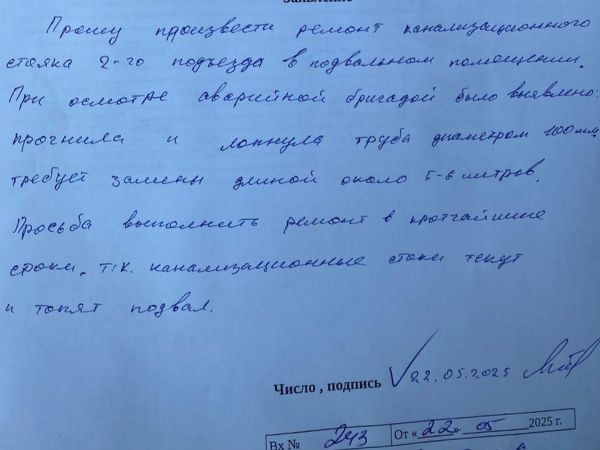 Заявление
Прошу произвести ремонт канализационного
стояка 2-го подъезда в подвальном помещении.
При осмотре аварийной бригадой было выявлено:
прогнила и лопнула труба диаметром 100 мм.
требует замены длиной около 5-6 метров.
Просьба выполнить ремонт в кротчайшие
сроки, т.к. канализационные стоки текут
и топят подвал.
Число , подпись 22.05.2025
Вх № 243 От «22» 05 2025 г.